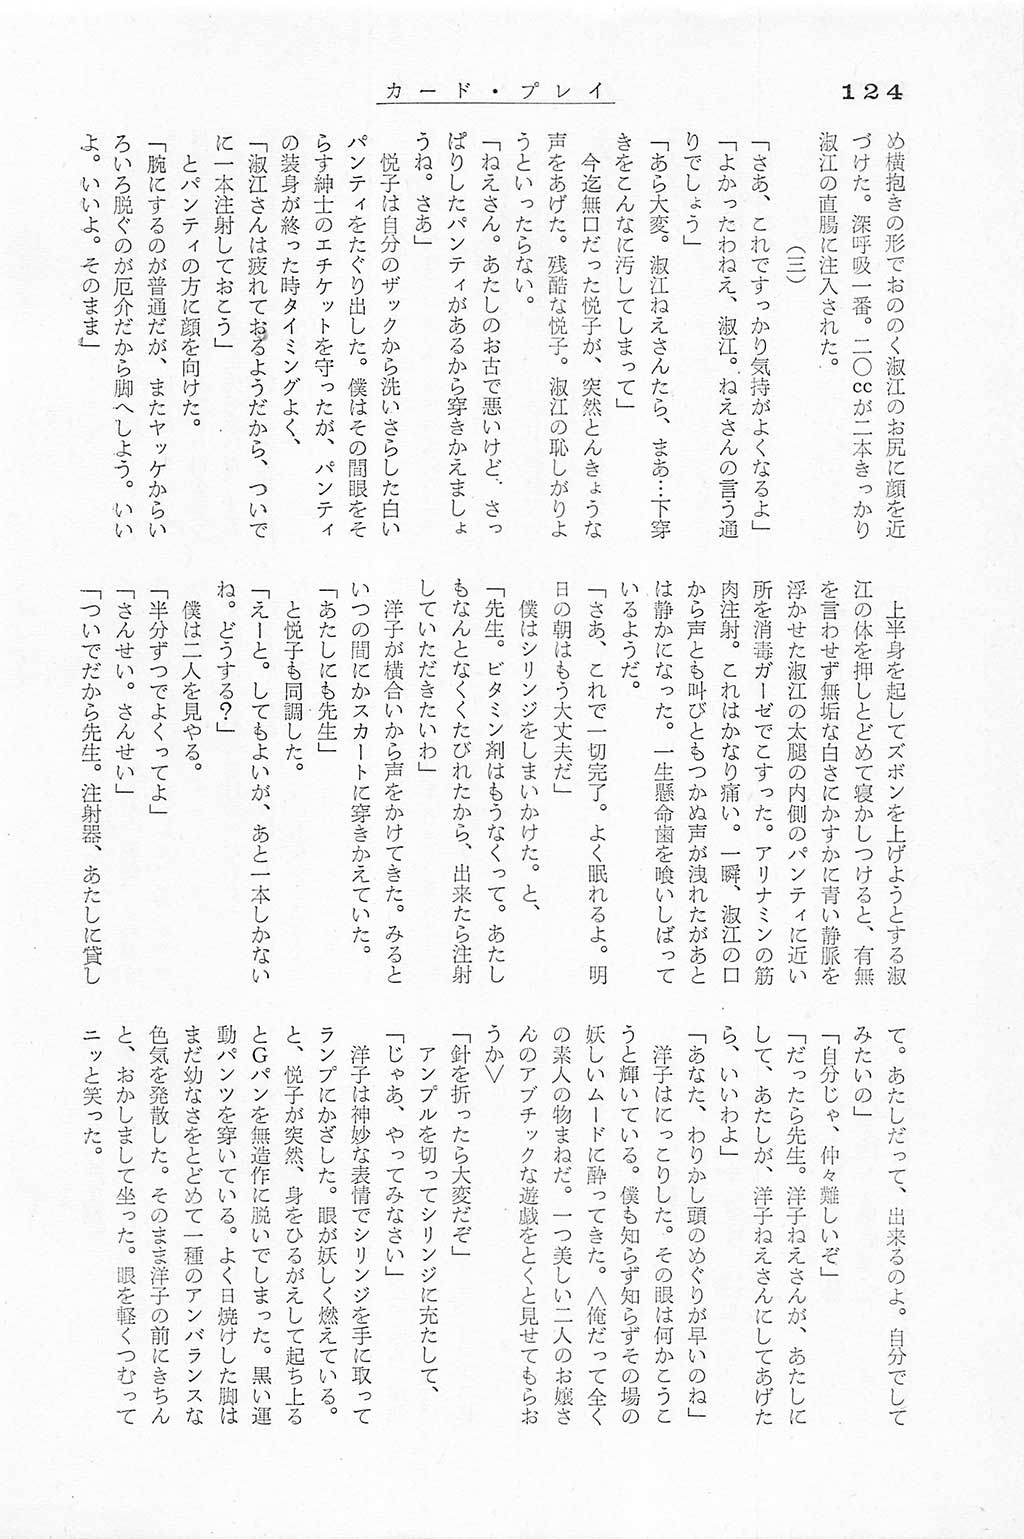 124
カード・プレイ
め横抱きの形でおののく淑江のお尻に顔を近
づけた。深呼吸一番。二〇ccが二本きっかり
淑江の直腸に注入された。
(三)
「さあ、これですっかり気持がよくなるよ」
「よかったわねえ、淑江。ねえさんの言う通
りでしょう」
「あら大変。淑江ねえさんたら、まあ…下穿
きをこんなに汚してしまって」
今迄無口だった悦子が、突然とんきょうな
声をあげた。残酷な悦子。淑江の恥しがりよ
うといったらない。
「ねえさん。あたしのお古で悪いけど、さっ
ぱりしたパンティがあるから穿きかえましょ
うね。さあ」
悦子は自分のザックから洗いさらした白い
パンティをたぐり出した。僕はその間眼をそ
らす紳士のエチケットを守ったが、パンティ
の装身が終った時タイミングよく、
「淑江さんは疲れておるようだから、ついで
に一本注射しておこう」
とパンティの方に顔を向けた。
「腕にするのが普通だが、またヤッケからい
ろいろ脱ぐのが厄介だから脚へしよう。いい
よ。いいよ。そのまま」
上半身を起してズボンを上げようとする淑
江の体を押しとどめて寝かしつけると、有無
を言わせず無垢な白さにかすかに青い静脈を
浮かせた淑江の太腿の内側のパンティに近い
所を消毒ガーゼでこすった。アリナミンの筋
肉注射。これはかなり痛い。一瞬、淑江の口
から声とも叫びともつかぬ声が洩れたがあと
は静かになった。一生懸命歯を喰いしばって
いるようだ。
「さあ、これで一切完了。よく眠れるよ。明
日の朝はもう大丈夫だ」
僕はシリンジをしまいかけた。と、
「先生。ビタミン剤はもうなくって。あたし
もなんとなくくたびれたから、出来たら注射
していただきたいわ」
洋子が横合いから声をかけてきた。みると
いつの間にかスカートに穿きかえていた。
「あたしにも先生」
と悦子も同調した。
「えーと。してもよいが、あと一本しかない
ね。どうする?」
僕は二人を見やる。
「半分ずつでよくってよ」
「さんせい。さんせい」
「ついでだから先生。注射器、あたしに貸し
て。あたしだって、出来るのよ。自分でして
みたいの」
「自分じゃ、仲々難しいぞ」
「だったら先生。洋子ねえさんが、あたしに
して、あたしが、洋子ねえさんにしてあげた
ら、いいわよ」
「あなた、わりかし頭のめぐりが早いのね」
洋子はにっこりした。その眼は何かこうこ
うと輝いている。僕も知らず知らずその場の
妖しいムードに酔ってきた。〈俺だって全く
の素人の物まねだ。一つ美しい二人のお嬢さ
んのアブチックな遊戯をとくと見せてもらお
うか〉
「針を折ったら大変だぞ」
アンプルを切ってシリンジに充たして、
「じゃあ、やってみなさい」
洋子は神妙な表情でシリンジを手に取って
ランプにかざした。眼が妖しく燃えている。
と、悦子が突然、身をひるがえして起ち上る
とGパンを無造作に脱いでしまった。黒い運
動パンツを穿いている。よく日焼けした脚は
まだ幼なさをとどめて一種のアンバランスな
色気を発散した。そのまま洋子の前にきちん
と、おかしまして坐った。眼を軽くつむって
ニッと笑った。